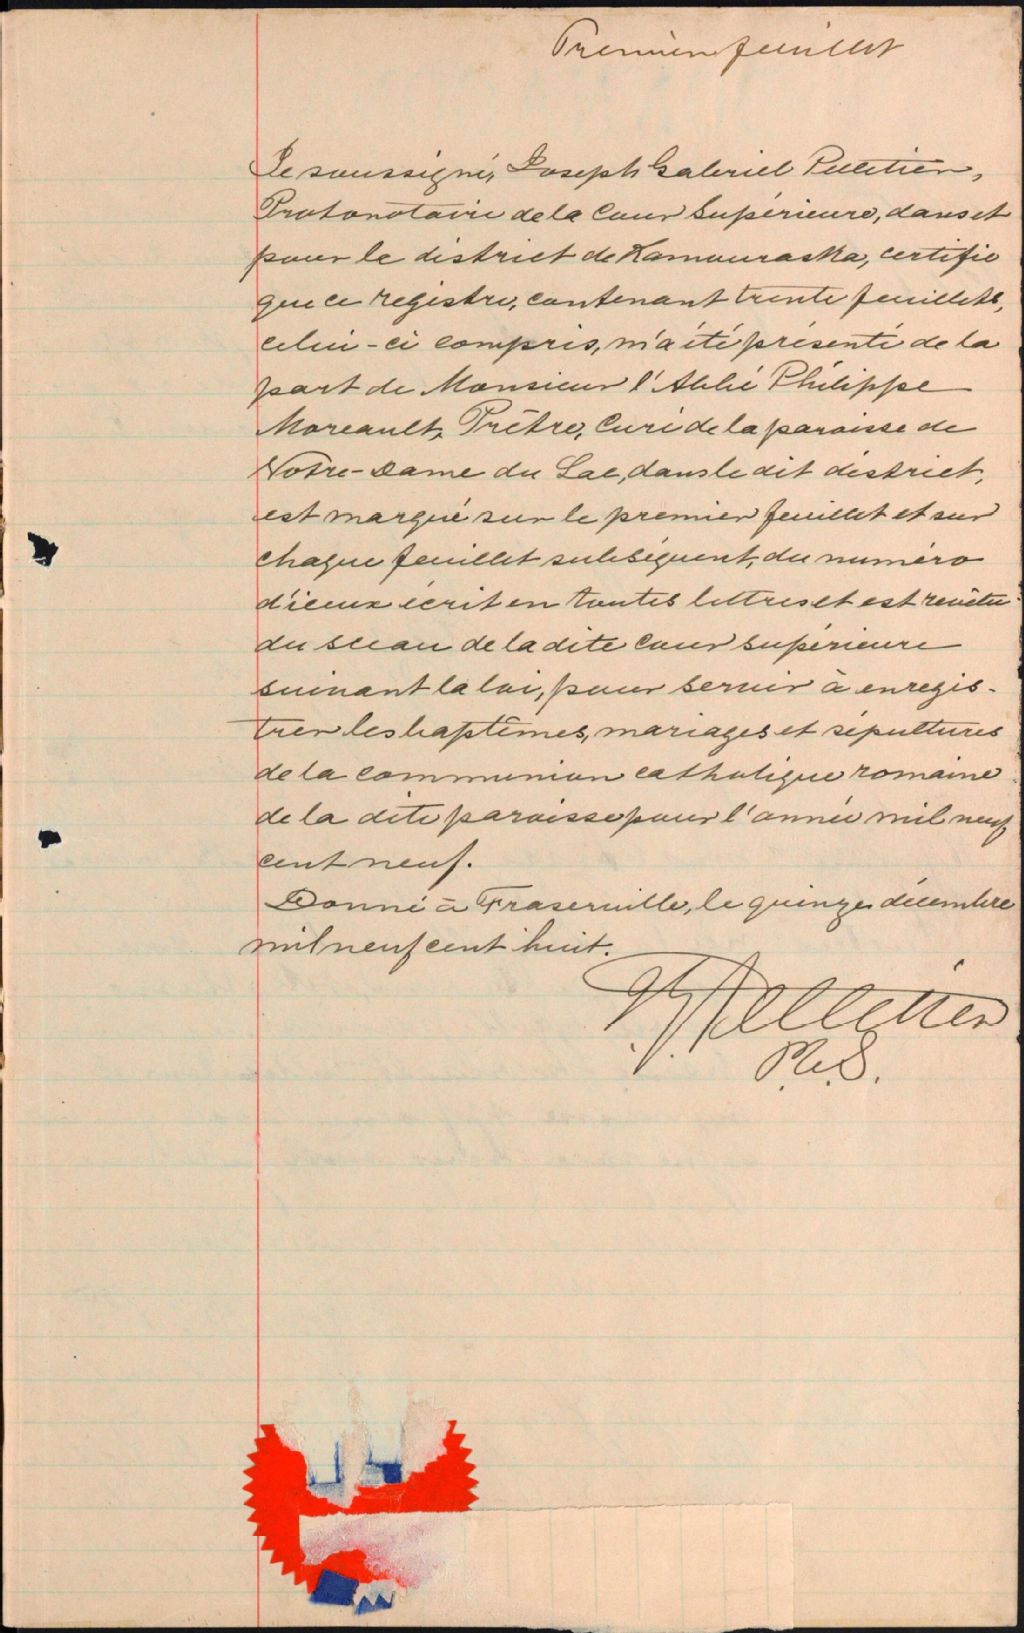 Premier feuillet
Je soussigné, Joseph Gabriel Pelletier,
Protonotaire de la Cour Supérieure, dans et
pour le district de Kamouraska, certifie
que ce registre, contenant trente feuillets,
celui-ci compris, m'a été présenté de la
part de Monsieur l'Abbé Philippe
Moreault, Prêtre, Curé de la paroisse de
Notre-Dame du Lac, dans le dit district,
est marqué sur le premier feuillet et sur
chaque feuillet subséquent, du numéro
d'iceux écrit en toutes lettres et est revêtu
du sceau de la dite Cour Supérieure
suivant la loi, pour servir à enregis-
trer les baptêmes, mariages et sépultures
de la communion catholique romaine
de la dite paroisse pour l'année mil neuf
cent neuf.
Donné à Fraserville, le quinze décembre
mil neuf cent huit.
J.G. Pelletier
P.C.S.